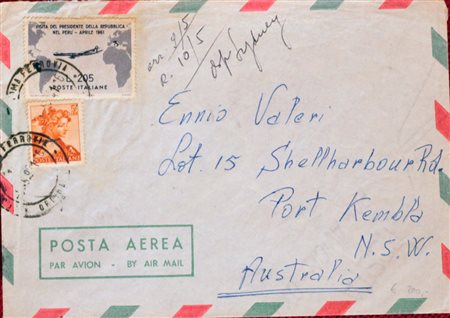 VISITA DEL PRESIDENTE DELLA REPUBBLICA
NEL PERÙ - APRILE 1961
L. 205
POSTE ITALIANE
arr. 8/5
R. 10/5
Sydney
Ennio Valeri
Lot. 15 Shellharbour Rd.
Port Kembla
N.S.W.
Australia
POSTA AEREA
PAR AVION - BY AIR MAIL